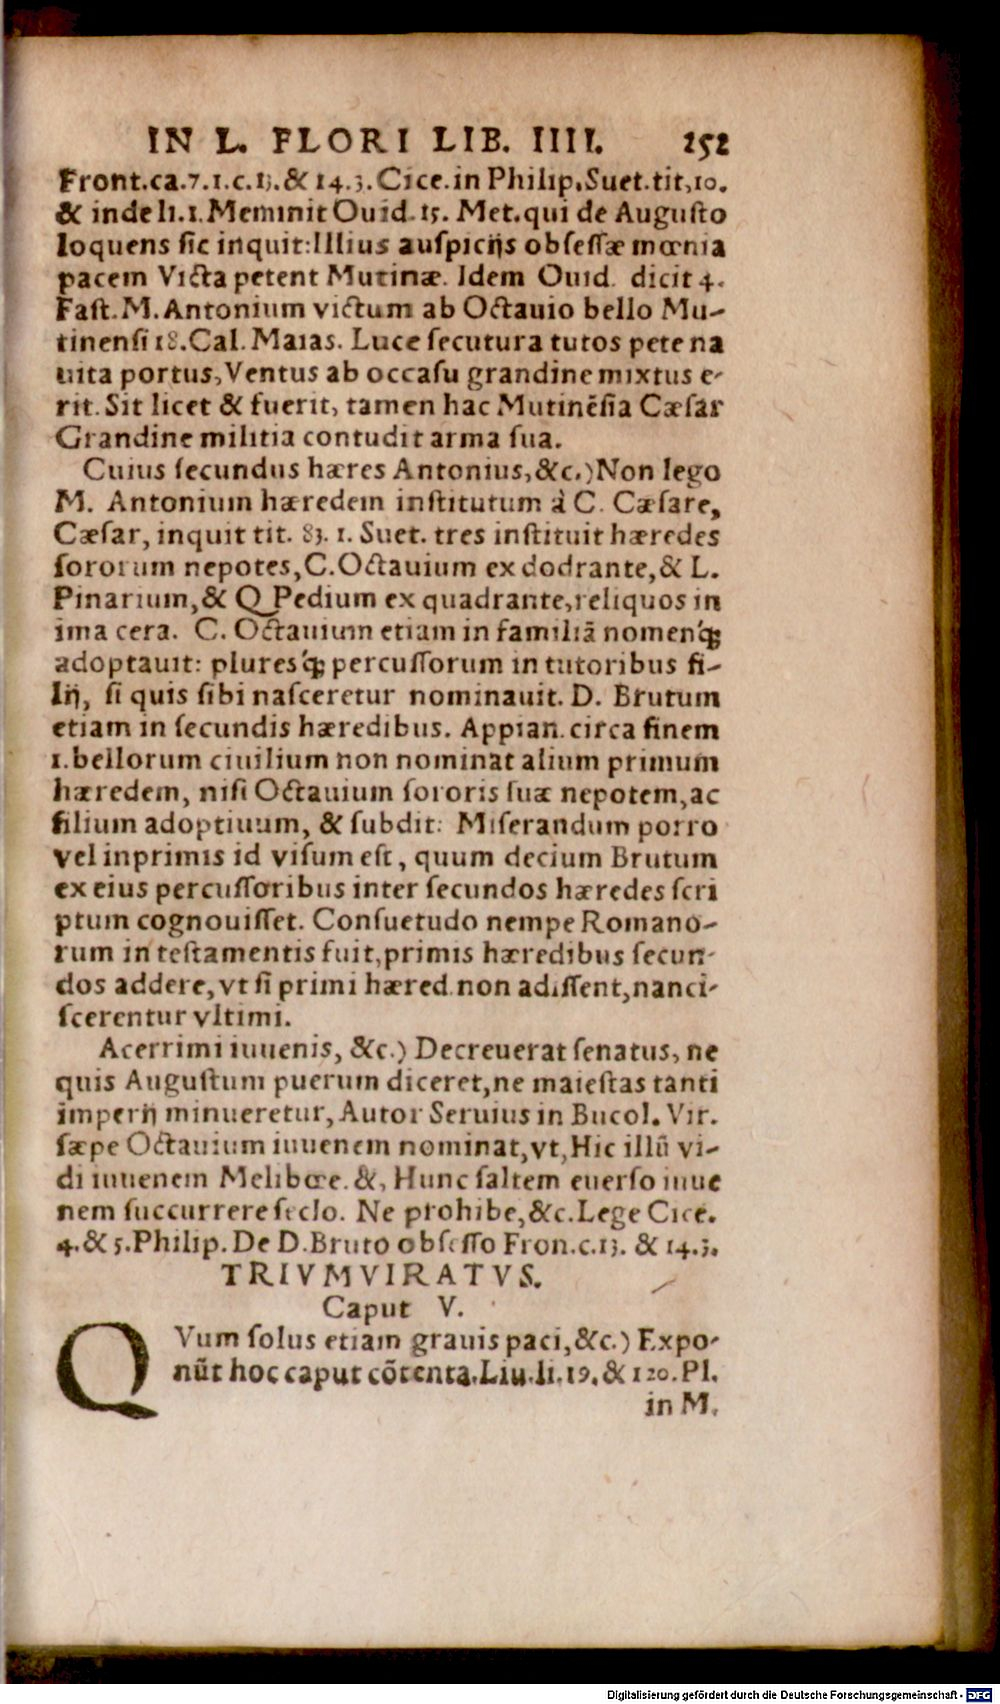 IN L. FLORI LIB. IIII. 252
Front.ca.7.1.c.13.& 14.3.Cice.in Philip.Suet.tit,10.
& inde li.1.Meminit Ouid.15. Met.qui de Auguſto
loquens ſic inquit:Illius auſpicijs obſeſſæ mœnia
pacem Victa petent Mutinæ. Idem Ouid. dicit 4.
Faſt.M.Antonium victum ab Octauio bello Mu-
tinenſi 18.Cal.Maias. Luce ſecutura tutos pete na
uita portus,Ventus ab occaſu grandine mixtus e-
rit.Sit licet & fuerit, tamen hac Mutinēſia Cæſar
Grandine militia contudit arma ſua.
Cuius ſecundus hæres Antonius,&c.)Non lego
M. Antonium hæredem inſtitutum à C. Cæſare,
Cæſar, inquit tit. 83. 1. Suet. tres inſtituit hæredes
ſororum nepotes,C.Octauium ex dodrante,& L.
Pinarium,& Q Pedium ex quadrante,reliquos in
ima cera. C. Octauium etiam in familiā nomenq́;
adoptauit: pluresq́; percuſſorum in tutoribus fi-
lij, ſi quis ſibi naſceretur nominauit. D. Brutum
etiam in ſecundis hæredibus. Appian.circa finem
1.bellorum ciuilium non nominat alium primum
hæredem, niſi Octauium ſororis ſuæ nepotem,ac
filium adoptiuum, & ſubdit: Miſerandum porro
vel inprimis id viſum eſt, quum decium Brutum
ex eius percuſſoribus inter ſecundos hæredes ſcri
ptum cognouiſſet. Conſuetudo nempe Romano-
rum in teſtamentis fuit,primis hæredibus ſecun-
dos addere,vt ſi primi hæred.non adiſſent,nanci-
ſcerentur vltimi.
Acerrimi iuuenis, &c.) Decreuerat ſenatus, ne
quis Auguſtum puerum diceret,ne maieſtas tanti
imperij minueretur, Autor Seruius in Bucol. Vir.
ſæpe Octauium iuuenem nominat,vt,Hic illū vi-
di iuuenem Melibœe.&, Hunc ſaltem euerſo iuue
nem ſuccurrere ſeclo. Ne prohibe,&c.Lege Cice.
4.& 5.Philip.De D.Bruto obſeſſo Fron.c.13. & 14.3.
TRIVMVIRATVS.
Caput V.
QVum ſolus etiam grauis paci,&c.) Expo-
nūt hoc caput cōtenta.Liu.li.19.& 120.Pl.
in M.
Digitalisierung gefördert durch die Deutsche Forschungsgemeinschaft - DFG